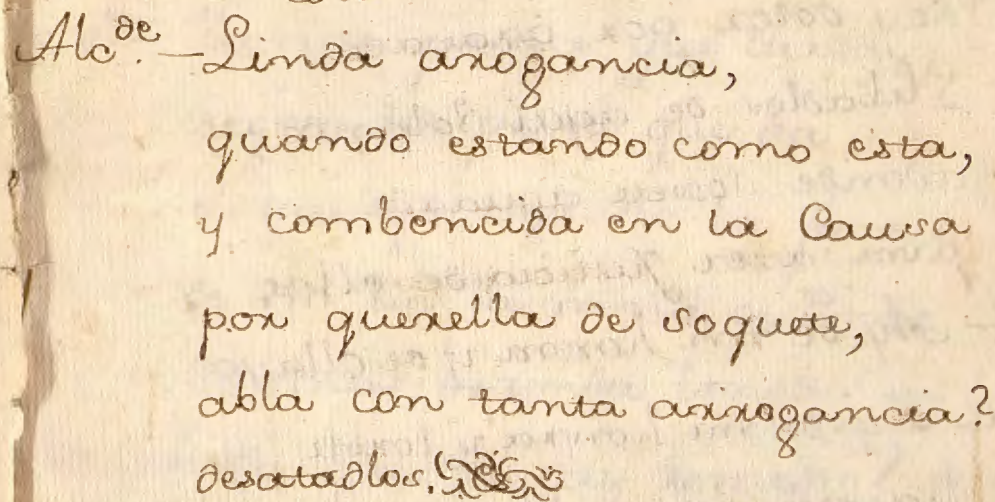 Alc.de - Linda arrogancia,
quando estando como esta,
y combencida en la Causa
por querella de soquete,
abla con tanta arrogancia?
desatadlos.